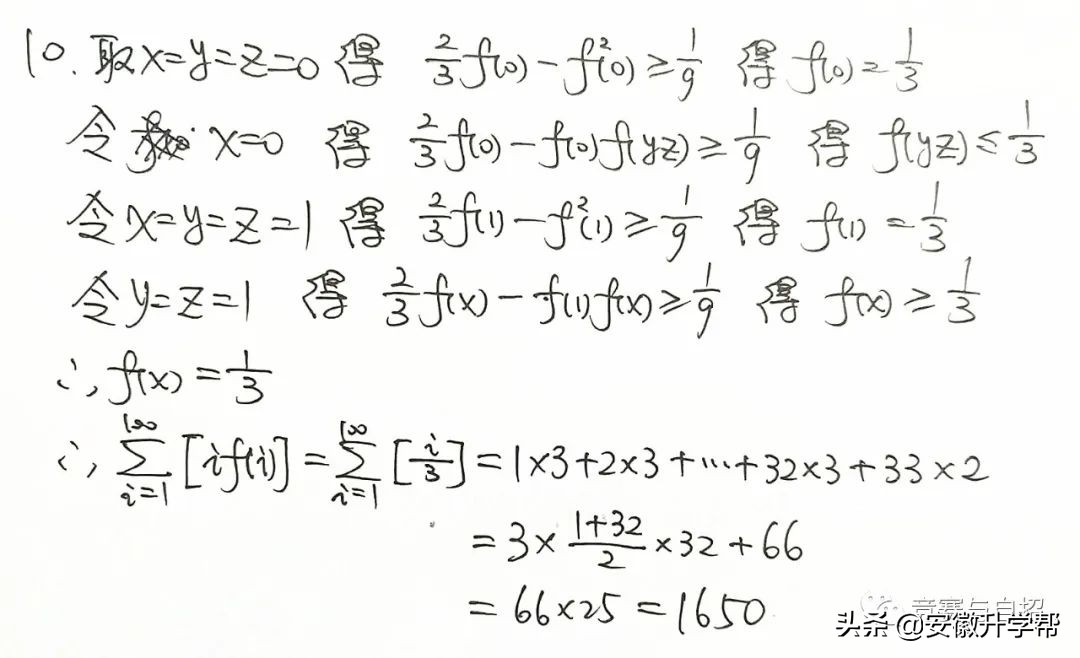 10. 取x=y=z=0 得 2/3 f(0) - f²(0) ≥ 1/9 得 f(0) = 1/3
令 x=0 得 2/3 f(0) - f(0)f(yz) ≥ 1/9 得 f(yz) ≤ 1/3
令x=y=z=1 得 2/3 f(1) - f²(1) ≥ 1/9 得 f(1) = 1/3
令y=z=1 得 2/3 f(x) - f(1)f(x) ≥ 1/9 得 f(x) ≥ 1/3
∴, f(x) = 1/3
∴, ∑_{i=1}^{100} [if(i)] = ∑_{i=1}^{100} [i/3] = 1×3+2×3+⋯+32×3+33×2
= 3× (1+32)/2 ×32+66
= 66×25 = 1650
竞赛与自招
头条 @安徽升学帮